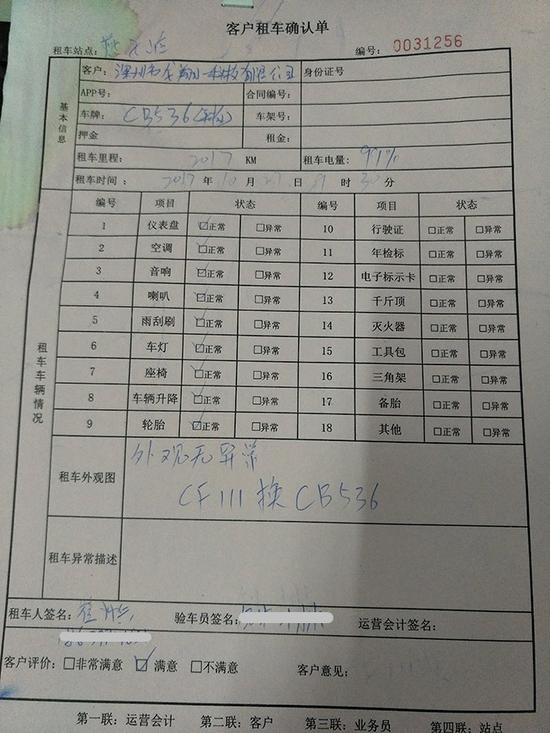 客户租车确认单
租车站点: 编号: 0031256
基本信息
客户: 有限公司 身份证号
APP号: 合同编号:
车牌: CB536 车架号:
押金 租金:
租车里程: 2017 KM 租车电量: 91%
租车时间: 2017年10月27日 时30分
租车车辆情况
编号 项目 状态 编号 项目 状态
1 仪表盘 ☑正常 □异常 10 行驶证 □正常 □异常
2 空调 ☑正常 □异常 11 年检标 □正常 □异常
3 音响 ☑正常 □异常 12 电子标示卡 □正常 □异常
4 喇叭 ☑正常 □异常 13 千斤顶 □正常 □异常
5 雨刮刷 ☑正常 □异常 14 灭火器 □正常 □异常
6 车灯 ☑正常 □异常 15 工具包 □正常 □异常
7 座椅 ☑正常 □异常 16 三角架 □正常 □异常
8 车辆升降 ☑正常 □异常 17 备胎 □正常 □异常
9 轮胎 ☑正常 □异常 18 其他 □正常 □异常
租车外观图 外观无异常
CF111换CB536
租车异常描述
租车人签名: 验车员签名: 运营会计签名:
客户评价: □非常满意 ☑满意 □不满意 客户意见:
第一联: 运营会计 第二联: 客户 第三联: 业务员 第四联: 站点